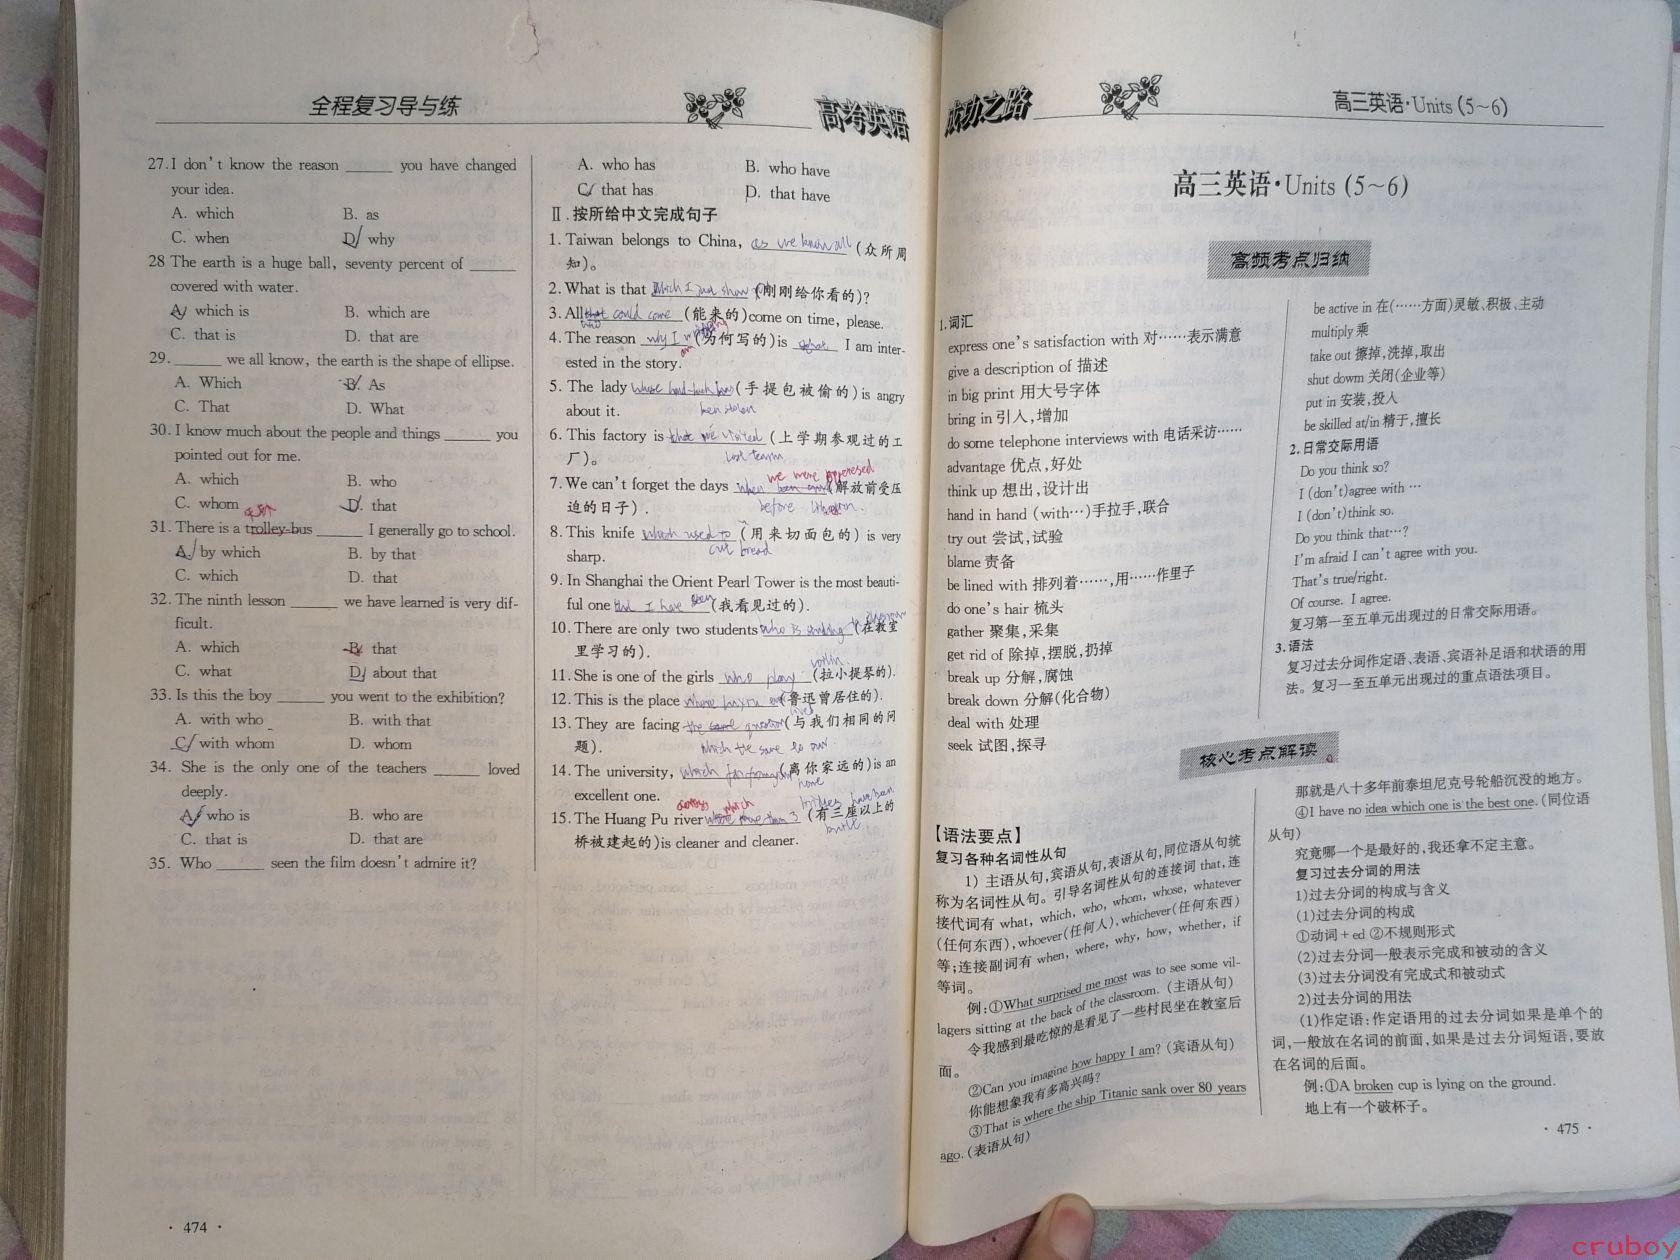 全程复习导与练
高考英语
27. I don't know the reason ______ you have changed
your idea.
A. which B. as
C. when D. why
28 The earth is a huge ball, seventy percent of ______
covered with water.
A. which is B. which are
C. that is D. that are
29. ______ we all know, the earth is the shape of ellipse.
A. Which B. As
C. That D. What
30. I know much about the people and things ______ you
pointed out for me.
A. which B. who
C. whom D. that
31. There is a trolley-bus ______ I generally go to school.
A. by which B. by that
C. which D. that
32. The ninth lesson ______ we have learned is very dif-
ficult.
A. which B. that
C. what D. about that
33. Is this the boy ______ you went to the exhibition?
A. with who B. with that
C. with whom D. whom
34. She is the only one of the teachers ______ loved
deeply.
A. who is B. who are
C. that is D. that are
35. Who ______ seen the film doesn't admire it?
· 474 ·
A. who has B. who have
C. that has D. that have
Ⅱ.按所给中文完成句子
1. Taiwan belongs to China, as we know all (众所周
知)。
2. What is that which I just show you (刚刚给你看的)?
3. All that could come (能来的)come on time, please.
who
4. The reason why I writing (为何写的)is that I am inter-
ested in the story.
5. The lady whose hand-bush has (手提包被偷的)is angry
about it. ben stolen
6. This factory is that we visited (上学期参观过的工
厂)。 last tearm
we were
7. We can't forget the days when been (解放前受压
迫的日子). before
8. This knife which used to (用来切面包的) is very
sharp. cut bread
9. In Shanghai the Orient Pearl Tower is the most beauti-
ful one that I have seen (我看见过的).
10. There are only two students who is (在教室
里学习的).
11. She is one of the girls who play (拉小提琴的).
12. This is the place where luxru (鲁迅曾居住的).
13. They are facing the same question (与我们相同的问
题). which the same to our.
14. The university, which far from your (离你家远的)is an
excellent one. home
across which bridges have been
15. The Huang Pu river where more than 3 (有三座以上的
桥被建起的)is cleaner and cleaner.
成功之路
高三英语·Units (5~6)
高三英语·Units (5~6)
高频考点归纳
1.词汇
express one's satisfaction with 对……表示满意
give a description of 描述
in big print 用大号字体
bring in 引入,增加
do some telephone interviews with 电话采访……
advantage 优点,好处
think up 想出,设计出
hand in hand (with…)手拉手,联合
try out 尝试,试验
blame 责备
be lined with 排列着……,用……作里子
do one's hair 梳头
gather 聚集,采集
get rid of 除掉,摆脱,扔掉
break up 分解,腐蚀
break down 分解(化合物)
deal with 处理
seek 试图,探寻
be active in 在(……方面)灵敏、积极、主动
multiply 乘
take out 擦掉,洗掉,取出
shut dowm 关闭(企业等)
put in 安装,投入
be skilled at/in 精于,擅长
2.日常交际用语
Do you think so?
I (don't)agree with …
I (don't)think so.
Do you think that…?
I'm afraid I can't agree with you.
That's true/right.
Of course. I agree.
复习第一至五单元出现过的日常交际用语。
3.语法
复习过去分词作定语、表语、宾语补足语和状语的用
法。复习一至五单元出现过的重点语法项目。
核心考点解读
【语法要点】
复习各种名词性从句
1) 主语从句,宾语从句,表语从句,同位语从句统
称为名词性从句。引导名词性从句的连接词 that,连
接代词有 what, which, who, whom, whose, whatever
(任何东西),whoever(任何人),whichever(任何东西)
等;连接副词有 when, where, why, how, whether, if
等词。
例:①What surprised me most was to see some vil-
lagers sitting at the back of the classroom. (主语从句)
令我感到最吃惊的是看见了一些村民坐在教室后
面。
②Can you imagine how happy I am? (宾语从句)
你能想象我有多高兴吗?
③That is where the ship Titanic sank over 80 years
ago. (表语从句)
那就是八十多年前泰坦尼克号轮船沉没的地方。
④I have no idea which one is the best one. (同位语
从句)
究竟哪一个是最好的,我还拿不定主意。
复习过去分词的用法
1)过去分词的构成与含义
(1)过去分词的构成
①动词+ed ②不规则形式
(2)过去分词一般表示完成和被动的含义
(3)过去分词没有完成式和被动式
2)过去分词的用法
(1)作定语:作定语用的过去分词如果是单个的
词,一般放在名词的前面,如果是过去分词短语,要放
在名词的后面。
例:①A broken cup is lying on the ground.
地上有一个破杯子。
· 475 ·
cruboy